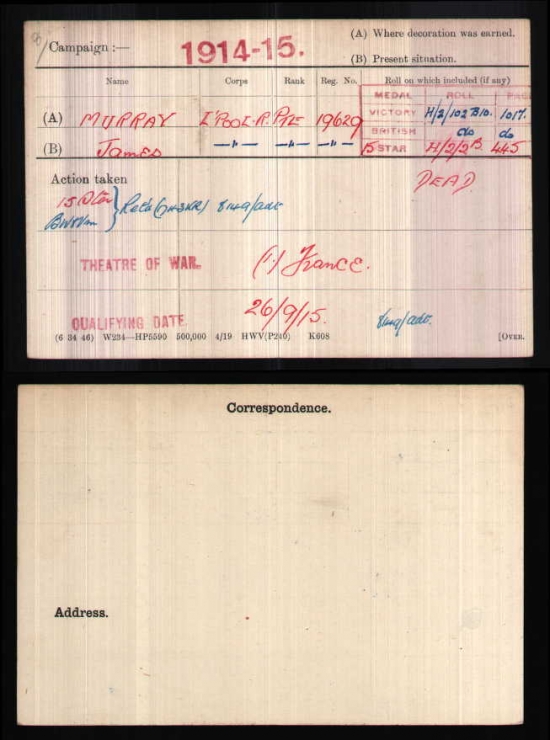 Campaign :—
1914-15.
(A) Where decoration was earned.
(B) Present situation.
Name Corps Rank Reg. No. Roll on which included (if any)
MEDAL ROLL PAGE
(A) MURRAY L'POOL.R. PTE 19629 VICTORY H/2/102 B10. 1017.
BRITISH do do
(B) James —"— —"— —"— 15 STAR H/2/2B. 445
Action taken
DEAD
THEATRE OF WAR. (1) France.
QUALIFYING DATE 26/9/15.
(6 34 46) W234—HP5590 500,000 4/19 HWV(P240) K608 [OVER.
Correspondence.
Address.